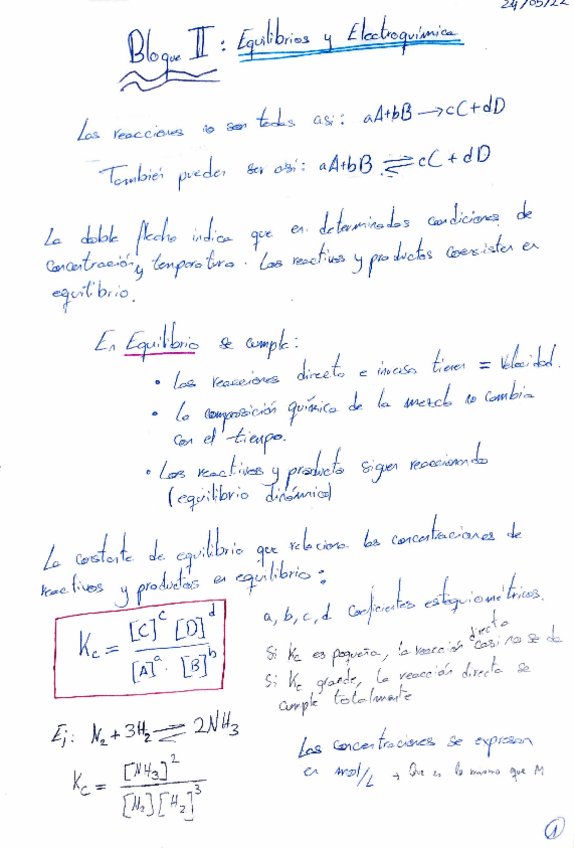 24/05/22
Bloque II: Equilibrios y Electroquímica
Las reacciones no son todas asi: aA+bB → cC+dD
También pueden ser asi: aA+bB ⇌ cC+dD
La doble flecha indica que en determinadas condiciones de
concentración y temperatura. Los reactivos y productos coexisten en
equilibrio.
En Equilibrio se cumple:
• Las reacciones directa e inversa tienen = Velocidad.
• La composición química de la mezcla no cambia
con el tiempo.
• Los reactivos y producto siguen reaccionando
(equilibrio dinámico)
La constante de equilibrio que relaciona las concentraciones de
reactivos y productos en equilibrio:
Kc = [C]^c [D]^d / [A]^a · [B]^b
a, b, c, d Coeficientes estequiométricos.
Si Kc es pequeña, la reacción directa casi no se da
Si Kc grande, la reacción directa se
cumple totalmente
Ej: N₂ + 3H₂ ⇌ 2NH₃
Kc = [NH₃]² / [N₂][H₂]³
Las concentraciones se expresan
en mol/L → Que es lo mismo que M
1